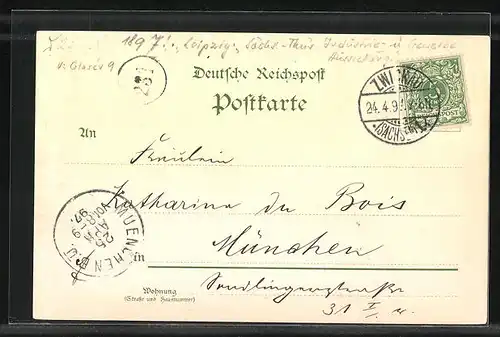 1897. Leipzig, Sächs.-Thür. Industrie- u. Gewerbe
Ausstellung
231
Deutsche Reichspost
Postkarte
ZWICKAU
24.4.97
(SACHSEN)
POST
An
Fräulein
Katharina du Bois
in München
MUENCHEN
25 APR
VOR 8-9
97.
Wohnung
(Straße und Hausnummer)
Sendlingerstraße
31 I/